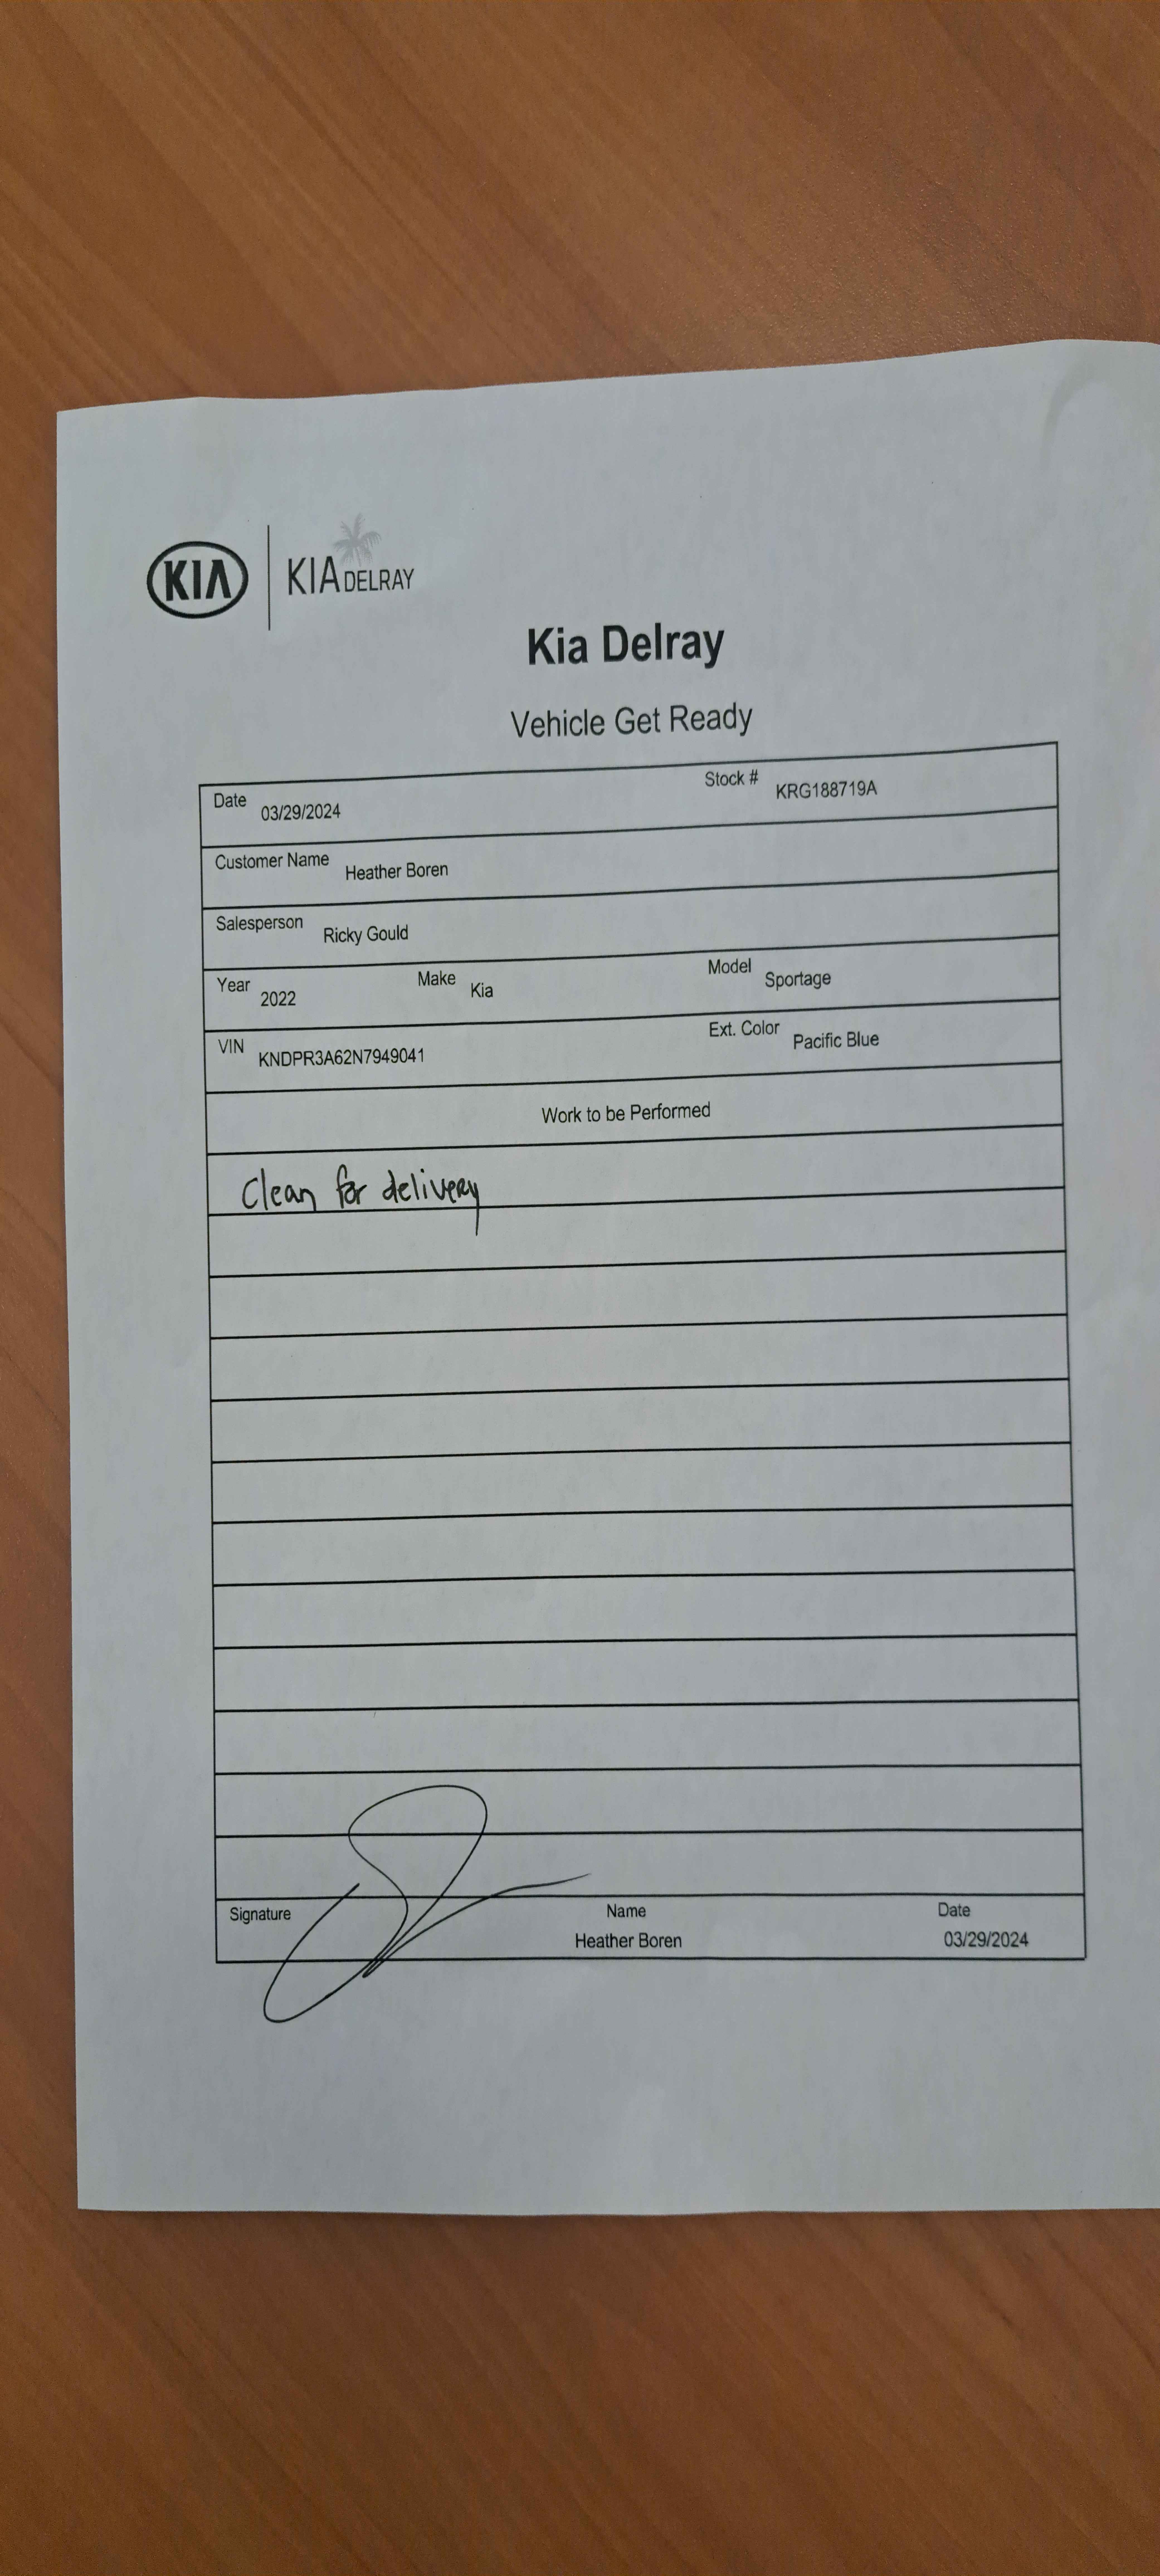 KIA KIA DELRAY
Kia Delray
Vehicle Get Ready
Date 03/29/2024 Stock # KRG188719A
Customer Name Heather Boren
Salesperson Ricky Gould
Year 2022 Make Kia Model Sportage
VIN KNDPR3A62N7949041 Ext. Color Pacific Blue
Work to be Performed
Clean for delivery
Signature Name Date
Heather Boren 03/29/2024